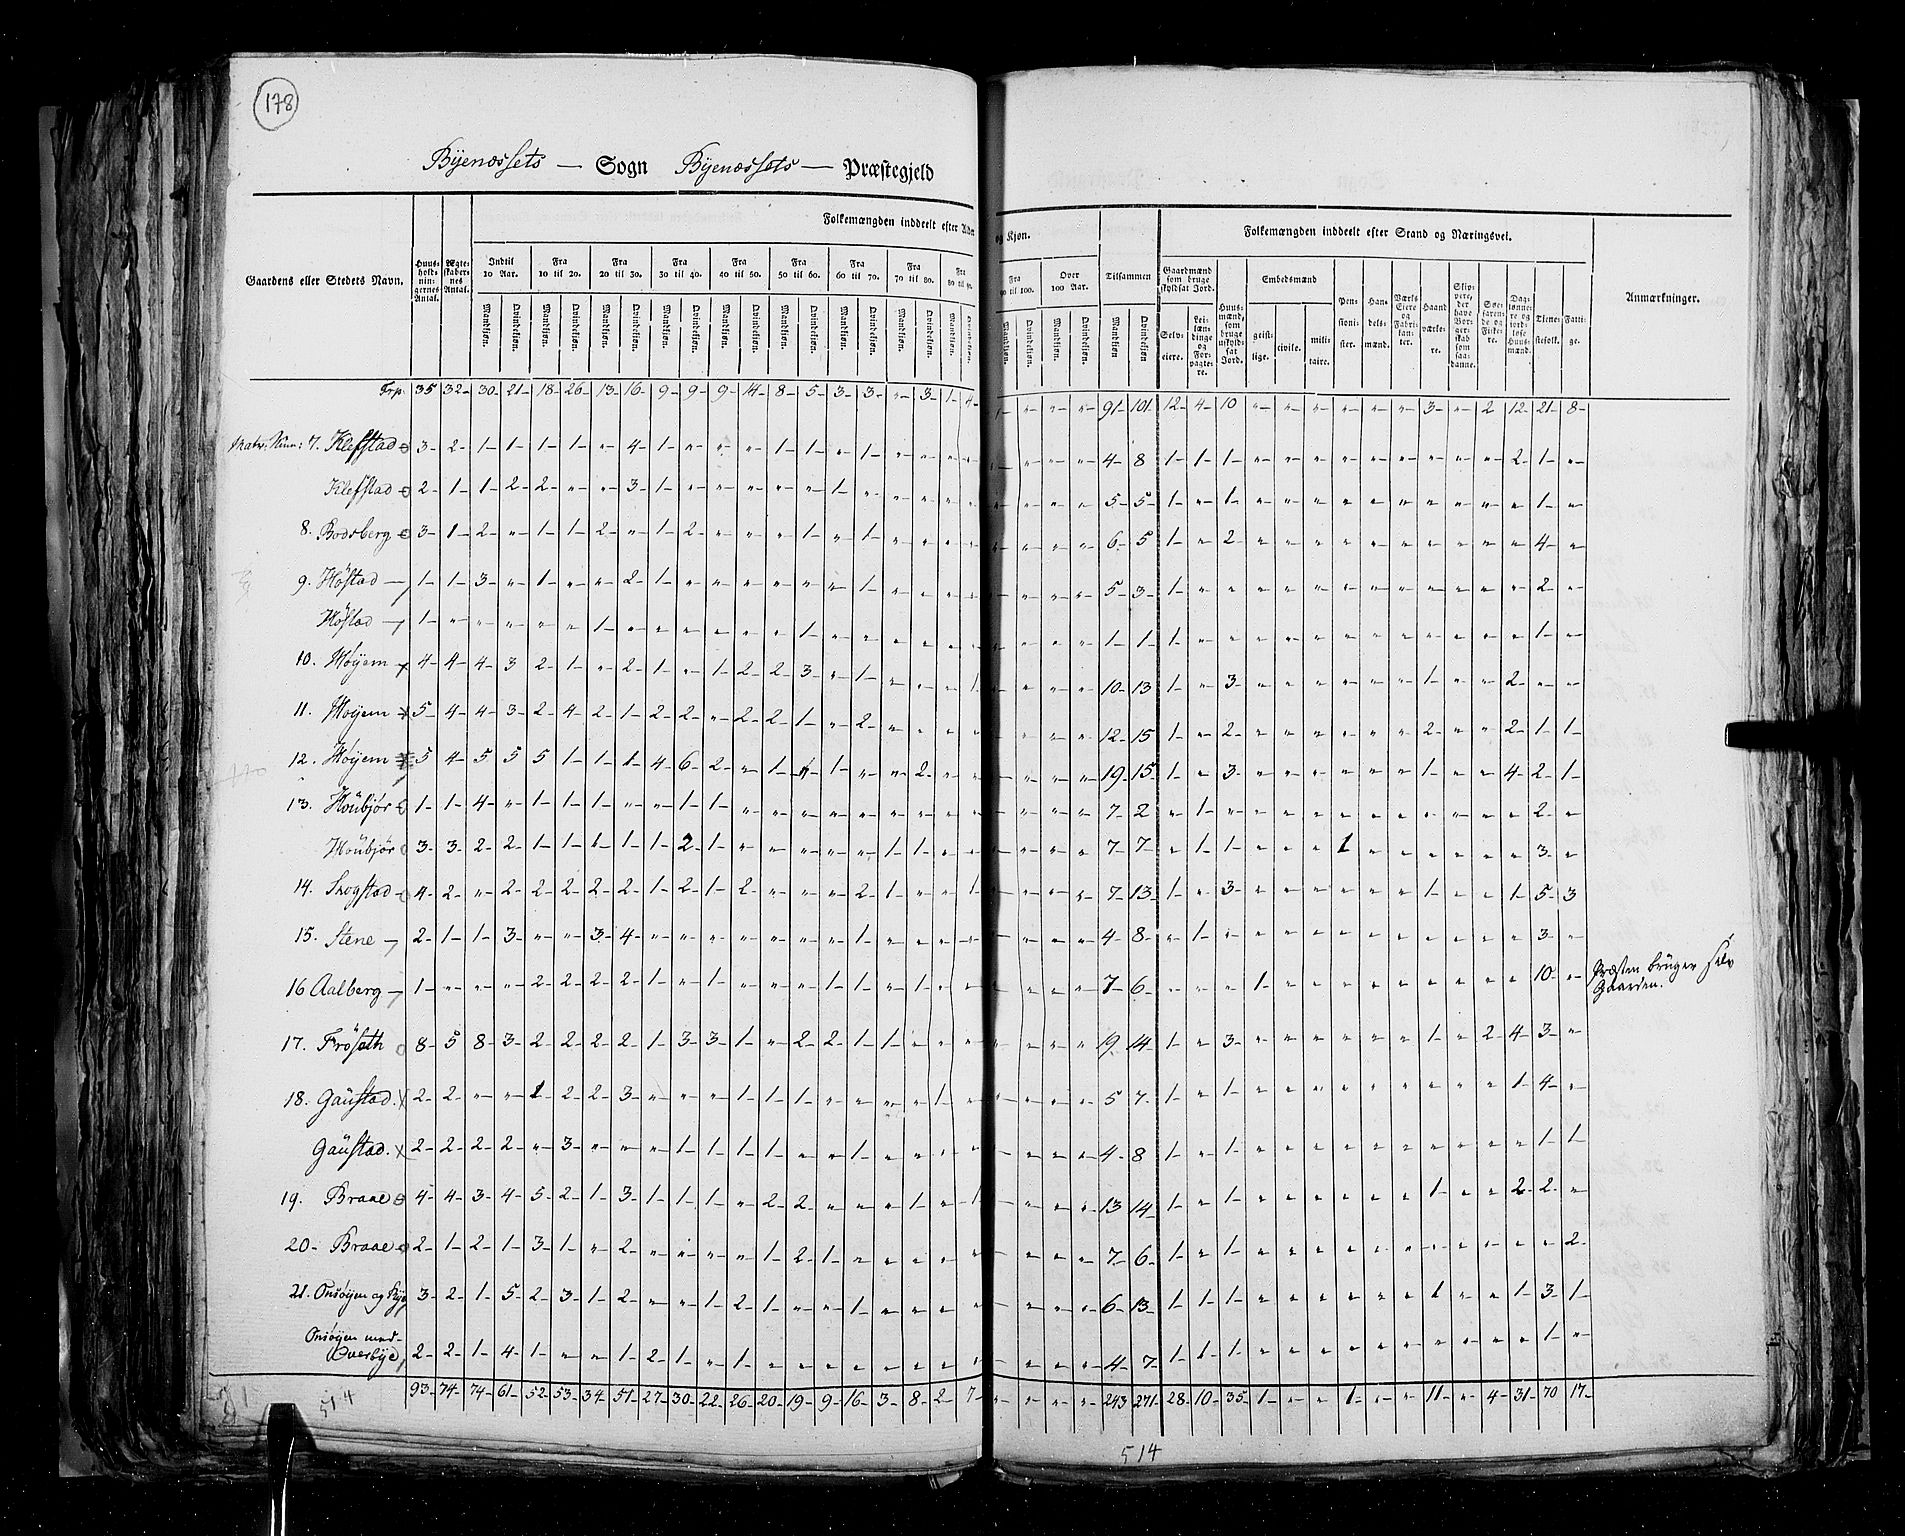 178
Byenæssets — Sogn Byenæssets — Præstegjeld
Folkemængden inddeelt efter Alder og Kjøn.
Folkemængden inddeelt efter Stand og Næringsvei.
Gaardens eller Stedets Navn.
Huus-holdningernes Antal.
Ægteskabernes Antal.
Indtil 10 Aar.
Fra 10 til 20.
Fra 20 til 30.
Fra 30 til 40.
Fra 40 til 50.
Fra 50 til 60.
Fra 60 til 70.
Fra 70 til 80.
Fra 80 til 90.
Fra 90 til 100.
Over 100 Aar.
Tilsammen
Mandkjøn. Qvindekjøn.
Gaardmænd som bruge skyldsat Jord.
Selveiere.
Leilændinge og Forpagtere.
Huusmænd, som bruge uskyldsat Jord.
Embedsmænd
geistlige. civile. militaire.
Pensionister.
Handelsmænd.
Værks Eiere og Fabrikanter.
Haandværkere.
Søefarende og Fiskere.
Tjenestefolk.
Fattige.
Anmærkninger.
Trp. 35 32 30 21 18 26 13 16 9 9 9 14 8 5 3 3 " 3 1 4 " " " 91 101 12 4 10 " " " " " " 3 " 2 12 21 8
Matr: Num: 7. Klefstad 3 2 1 1 1 1 " 4 1 " " " 1 1 " 1 " " " " " " " 4 8 1 1 1 " " " " " " " " " 2 1 "
Klefstad 2 1 1 2 2 " " 3 1 " " " " " 1 " " " " " " " " 5 5 1 " 1 " " " " " " " " " " 1 "
8. Bodsberg 3 1 2 " 1 1 2 " 1 2 " " " 1 " 1 " " " " " " " 6 5 1 " 2 " " " " " " " " " " 4 "
9. Höstad 1 1 3 " 1 " " 2 1 " " " " " " 1 " " " " " " " 5 3 1 " " " " " " " " " " " " 2 "
Höstad 1 " " " " " 1 " " " " " " 1 " " " " " " " " " 1 1 1 " " " " " " " " " " " " 1 "
10. Höyem 4 4 4 3 2 1 " 2 1 " 1 2 2 3 " 1 " " " 1 " " " 10 13 1 " 3 " " " " " " 1 " " 2 " "
11. Höyem 5 4 4 3 2 4 2 1 2 2 " 2 2 1 " 2 " " " " " " " 12 15 1 " 2 " " " " " " 2 " " 2 1 1
12. Höyem 5 4 5 5 5 1 1 1 4 6 2 " 1 " 1 " " 2 " " " " " 19 15 1 " 3 " " " " " " 1 " " 4 2 1
13. Höubjör 1 1 4 " 1 1 1 " " 1 1 " " " " " " " " " " " " 7 2 " 1 " " " " " " " " " " " 2 "
Höubjör 3 3 2 2 1 1 1 1 1 2 1 " " " " " 1 1 " " " " " 7 7 " 1 1 " " " 1 " " " " " " 3 "
14. Skogstad 4 2 " 2 2 2 2 2 1 2 1 2 " " " 2 1 " " 1 " " " 7 13 1 " 3 " " " " " " 1 " " 1 5 3
15. Stene 2 1 1 3 " " 3 4 " " " " " " " 1 " " " " " " " 4 8 " 1 " " " " " " " " " " " 3 "
16 Aalberg 1 " " " 2 2 2 2 1 " 1 " " " 1 1 " 1 " " " " " 7 6 " " " 1 " " " " " " " " " 10 " Præsten brüger selv
Gaarden.
17. Fröseth 8 5 8 3 2 2 2 2 1 3 3 1 " 2 2 1 1 " " " " " " 19 14 1 " 3 " " " " " " 1 " 2 4 3 "
18. Gaustad. 2 2 " " 1 2 2 3 " " " 1 1 1 " " " " 1 " " " " 5 7 1 " 1 " " " " " " " " " 1 4 "
Gaustad. 2 2 2 2 " 3 " " " 1 1 1 1 " " 1 " " " " " " " 4 8 1 " 1 " " " " " " " " " " 1 1
19. Braae 4 4 3 4 5 2 1 3 1 1 1 " 2 2 " " " 1 " 1 " " " 13 14 1 " 1 " " " " " " 1 " " 2 2 "
20. Braae 2 1 2 1 3 1 " 2 " " " " 1 2 1 " " " " " " " " 7 6 1 " 1 " " " " " " " " " " " 2
21. Onsöyen og Rye 3 2 1 5 2 3 1 2 " " 1 2 1 " " 1 " " " " " " " 6 13 1 1 1 " " " " " " 1 " " 1 3 1
Onsöyen med-
Overbye 2 2 1 4 1 " " 1 2 1 " 1 " " " " " " " " " " " 4 7 1 1 1 " " " " " " " " " " 1 "
93 74 74 61 52 53 34 51 27 30 22 26 20 19 9 16 3 8 2 7 " " " 243 271 28 10 35 1 " " 1 " " 11 " 4 31 70 17
514
514